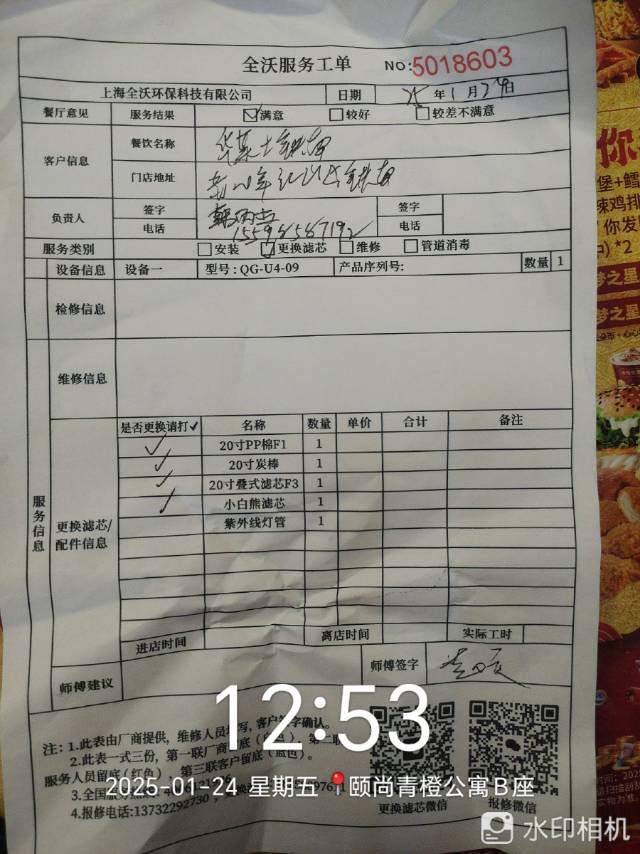 全沃服务工单 NO:5018603
上海全沃环保科技有限公司 日期 25年1月24日
餐厅意见 服务结果 ☑满意 □较好 □较差不满意
客户信息 餐饮名称 华莱士
门店地址
负责人 签字 签字
电话 电话
服务类别 □安装 ☑更换滤芯 □维修 □管道消毒
设备信息 设备一 型号:QG-U4-09 产品序列号: 数量 1
检修信息
维修信息
服务信息
更换滤芯/配件信息
是否更换请打✓ 名称 数量 单价 合计 备注
✓ 20寸PP棉F1 1
✓ 20寸炭棒 1
✓ 20寸叠式滤芯F3 1
✓ 小白熊滤芯 1
紫外线灯管 1
进店时间 离店时间 实际工时
师傅建议 师傅签字
12:53
注:1.此表由厂商提供,维修人员填写,客户签字确认。
2.此表一式三份,第一联厂商
服务人员留底(红色) 第三联客户留底(蓝色)。
3.全国服
4.报修电话:13732292730
更换滤芯微信 报修微信
2025-01-24 星期五 颐尚青橙公寓B座
水印相机
你
堡+鳕
辣鸡排
你发
)*2
梦之星